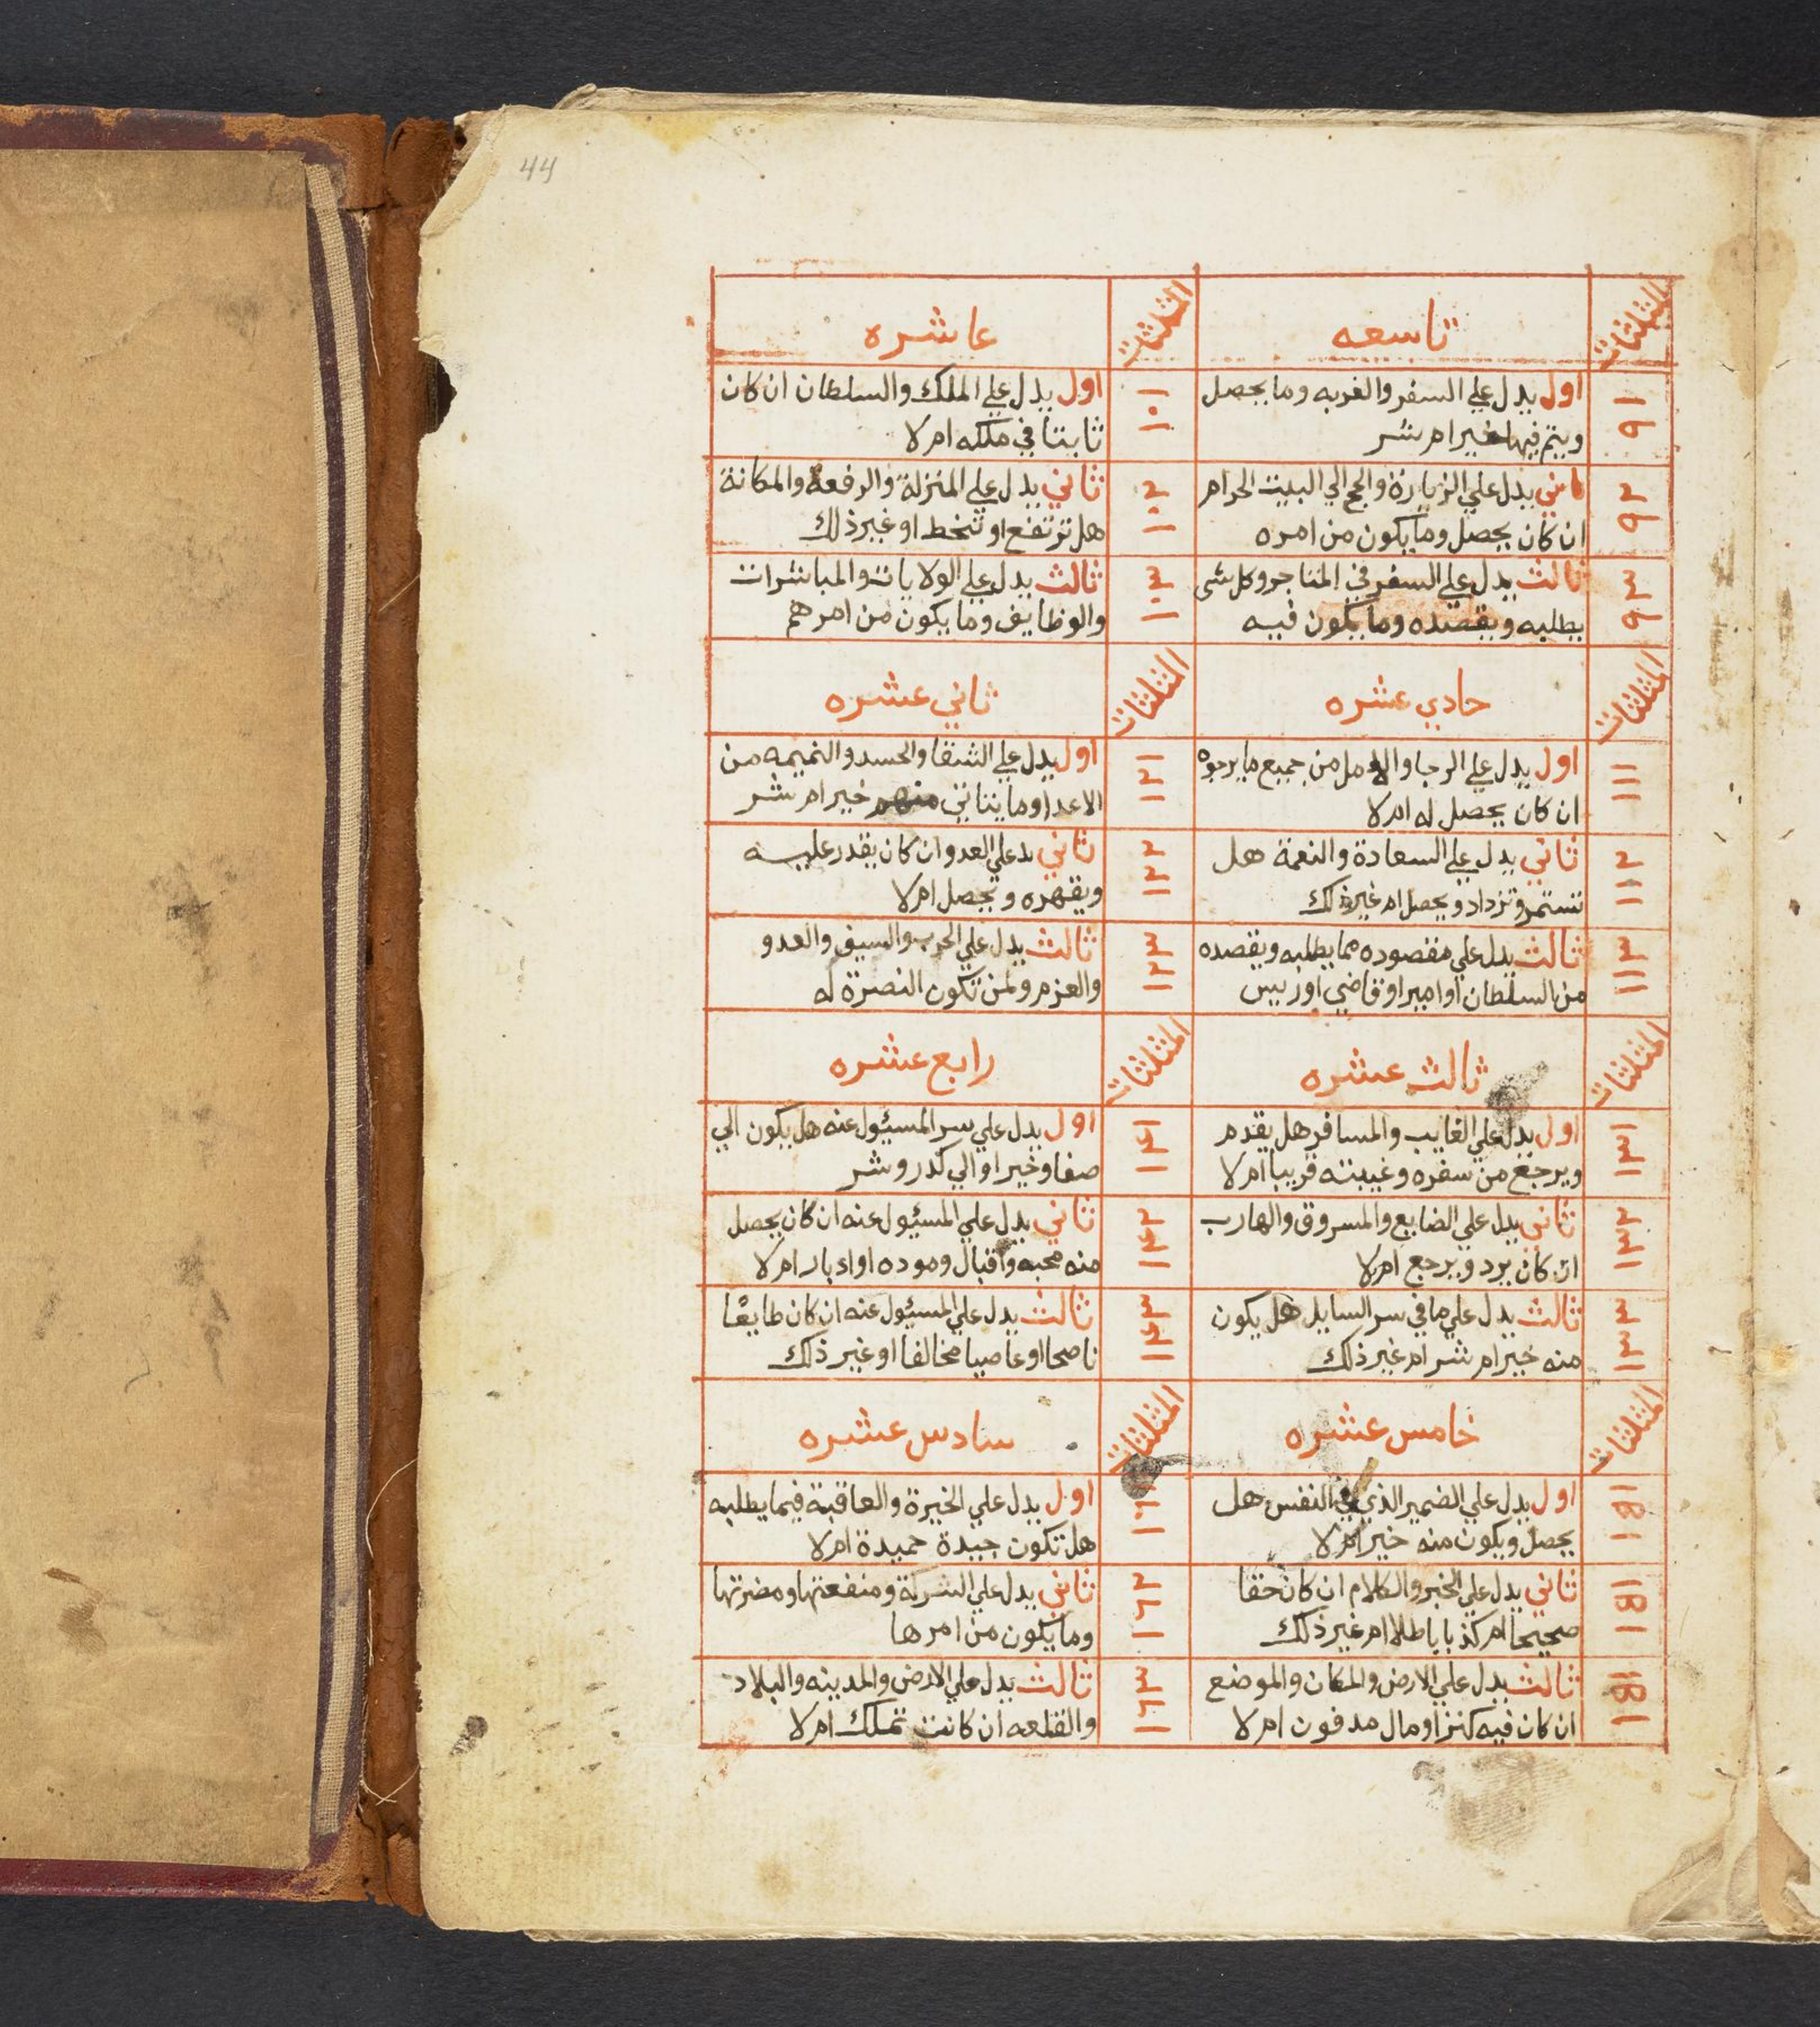 44
المثلثات
تاسعه
المثلثات
عاشره
٩١
اول يدل علي السفر والغربه وما يحصل
ويتم فيها خير ام شر
١٠١
اول يدل علي الملك والسلطان ان كان
ثابتا في ملكه ام لا
٩٢
ثاني يدل علي الزيارة والحج الي البيت الحرام
ان كان يحصل وما يكون من امره
١٠٢
ثاني يدل علي المنزلة والرفعة والمكانة
هل ترتفع او تنحط او غير ذلك
٩٣
ثالث يدل علي السفر في المتاجر وكل شي
يطلبه ويقصده وما يكون فيه
١٠٣
ثالث يدل علي الولايات والمباشرات
والوظايف وما يكون من امرهم
المثلثات
حادي عشره
المثلثات
ثاني عشره
١١١
اول يدل علي الرجا والامل من جميع ما يرجوه
ان كان يحصل له ام لا
١٢١
اول يدل علي الشقا والحسد والنميمه من
الاعدا وما يتاتي منهم خير ام شر
١١٢
ثاني يدل علي السعادة والنعمة هل
تستمر وتزداد ويحصل ام غير ذلك
١٢٢
ثاني يد علي العدو ان كان يقدر عليه
ويقهره ويحصل ام لا
١١٣
ثالث يدل علي مقصوده مما يطلبه ويقصده
من السلطان او امير او قاضي او رييس
١٢٣
ثالث يدل علي الحرب والسيف والعدو
والعزم ولمن تكون النصرة له
المثلثات
ثالث عشره
المثلثات
رابع عشره
١٣١
اول يدل علي الغايب والمسافر هل يقدم
ويرجع من سفره وغيبته قريبا ام لا
١٤١
اول يدل علي سر المسئول عنه هل يكون الي
صفا وخير او الي كدر وشر
١٣٢
ثاني يدل علي الضايع والمسروق والهارب
ان كان يرد ويرجع ام لا
١٤٢
ثاني يدل علي المسئول عنه ان كان يحصل
منه محبه واقبال وموده او ادبار ام لا
١٣٣
ثالث يدل علي ما في سر السايل هل يكون
منه خير ام شر ام غير ذلك
١٤٣
ثالث يدل علي المسئول عنه ان كان طايعا
ناصحا او عاصيا مخالفا او غير ذلك
المثلثات
خامس عشره
المثلثات
سادس عشره
اول يدل علي الضمير الذي في النفس هل
يحصل ويكون منه خير ام لا
١٦١
اول يدل علي الخيرة والعاقبة فيما يطلبه
هل تكون جيدة حميدة ام لا
ثاني يدل علي الخبر والكلام ان كان حقا
صحيحا ام كذبا باطلا ام غير ذلك
١٦٢
ثاني يدل علي الشركة ومنفعتها ومضرتها
وما يكون من امرها
ثالث يدل علي الارض والمكان والموضع
ان كان فيه كنز او مال مدفون ام لا
١٦٣
ثالث يدل علي الارض والمدينه والبلاد
والقلعه ان كانت تملك ام لا